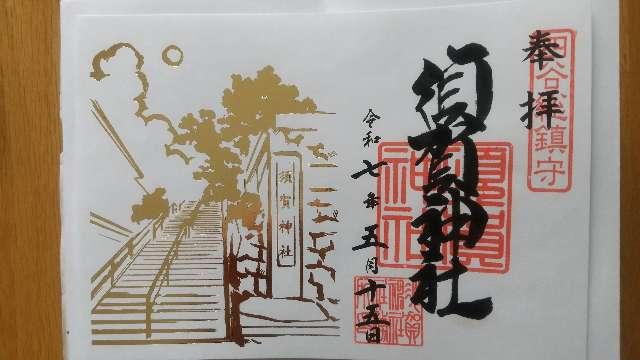 奉拝
四谷総鎮守
須賀神社
須賀神社
令和七年五月十五日
須賀神社